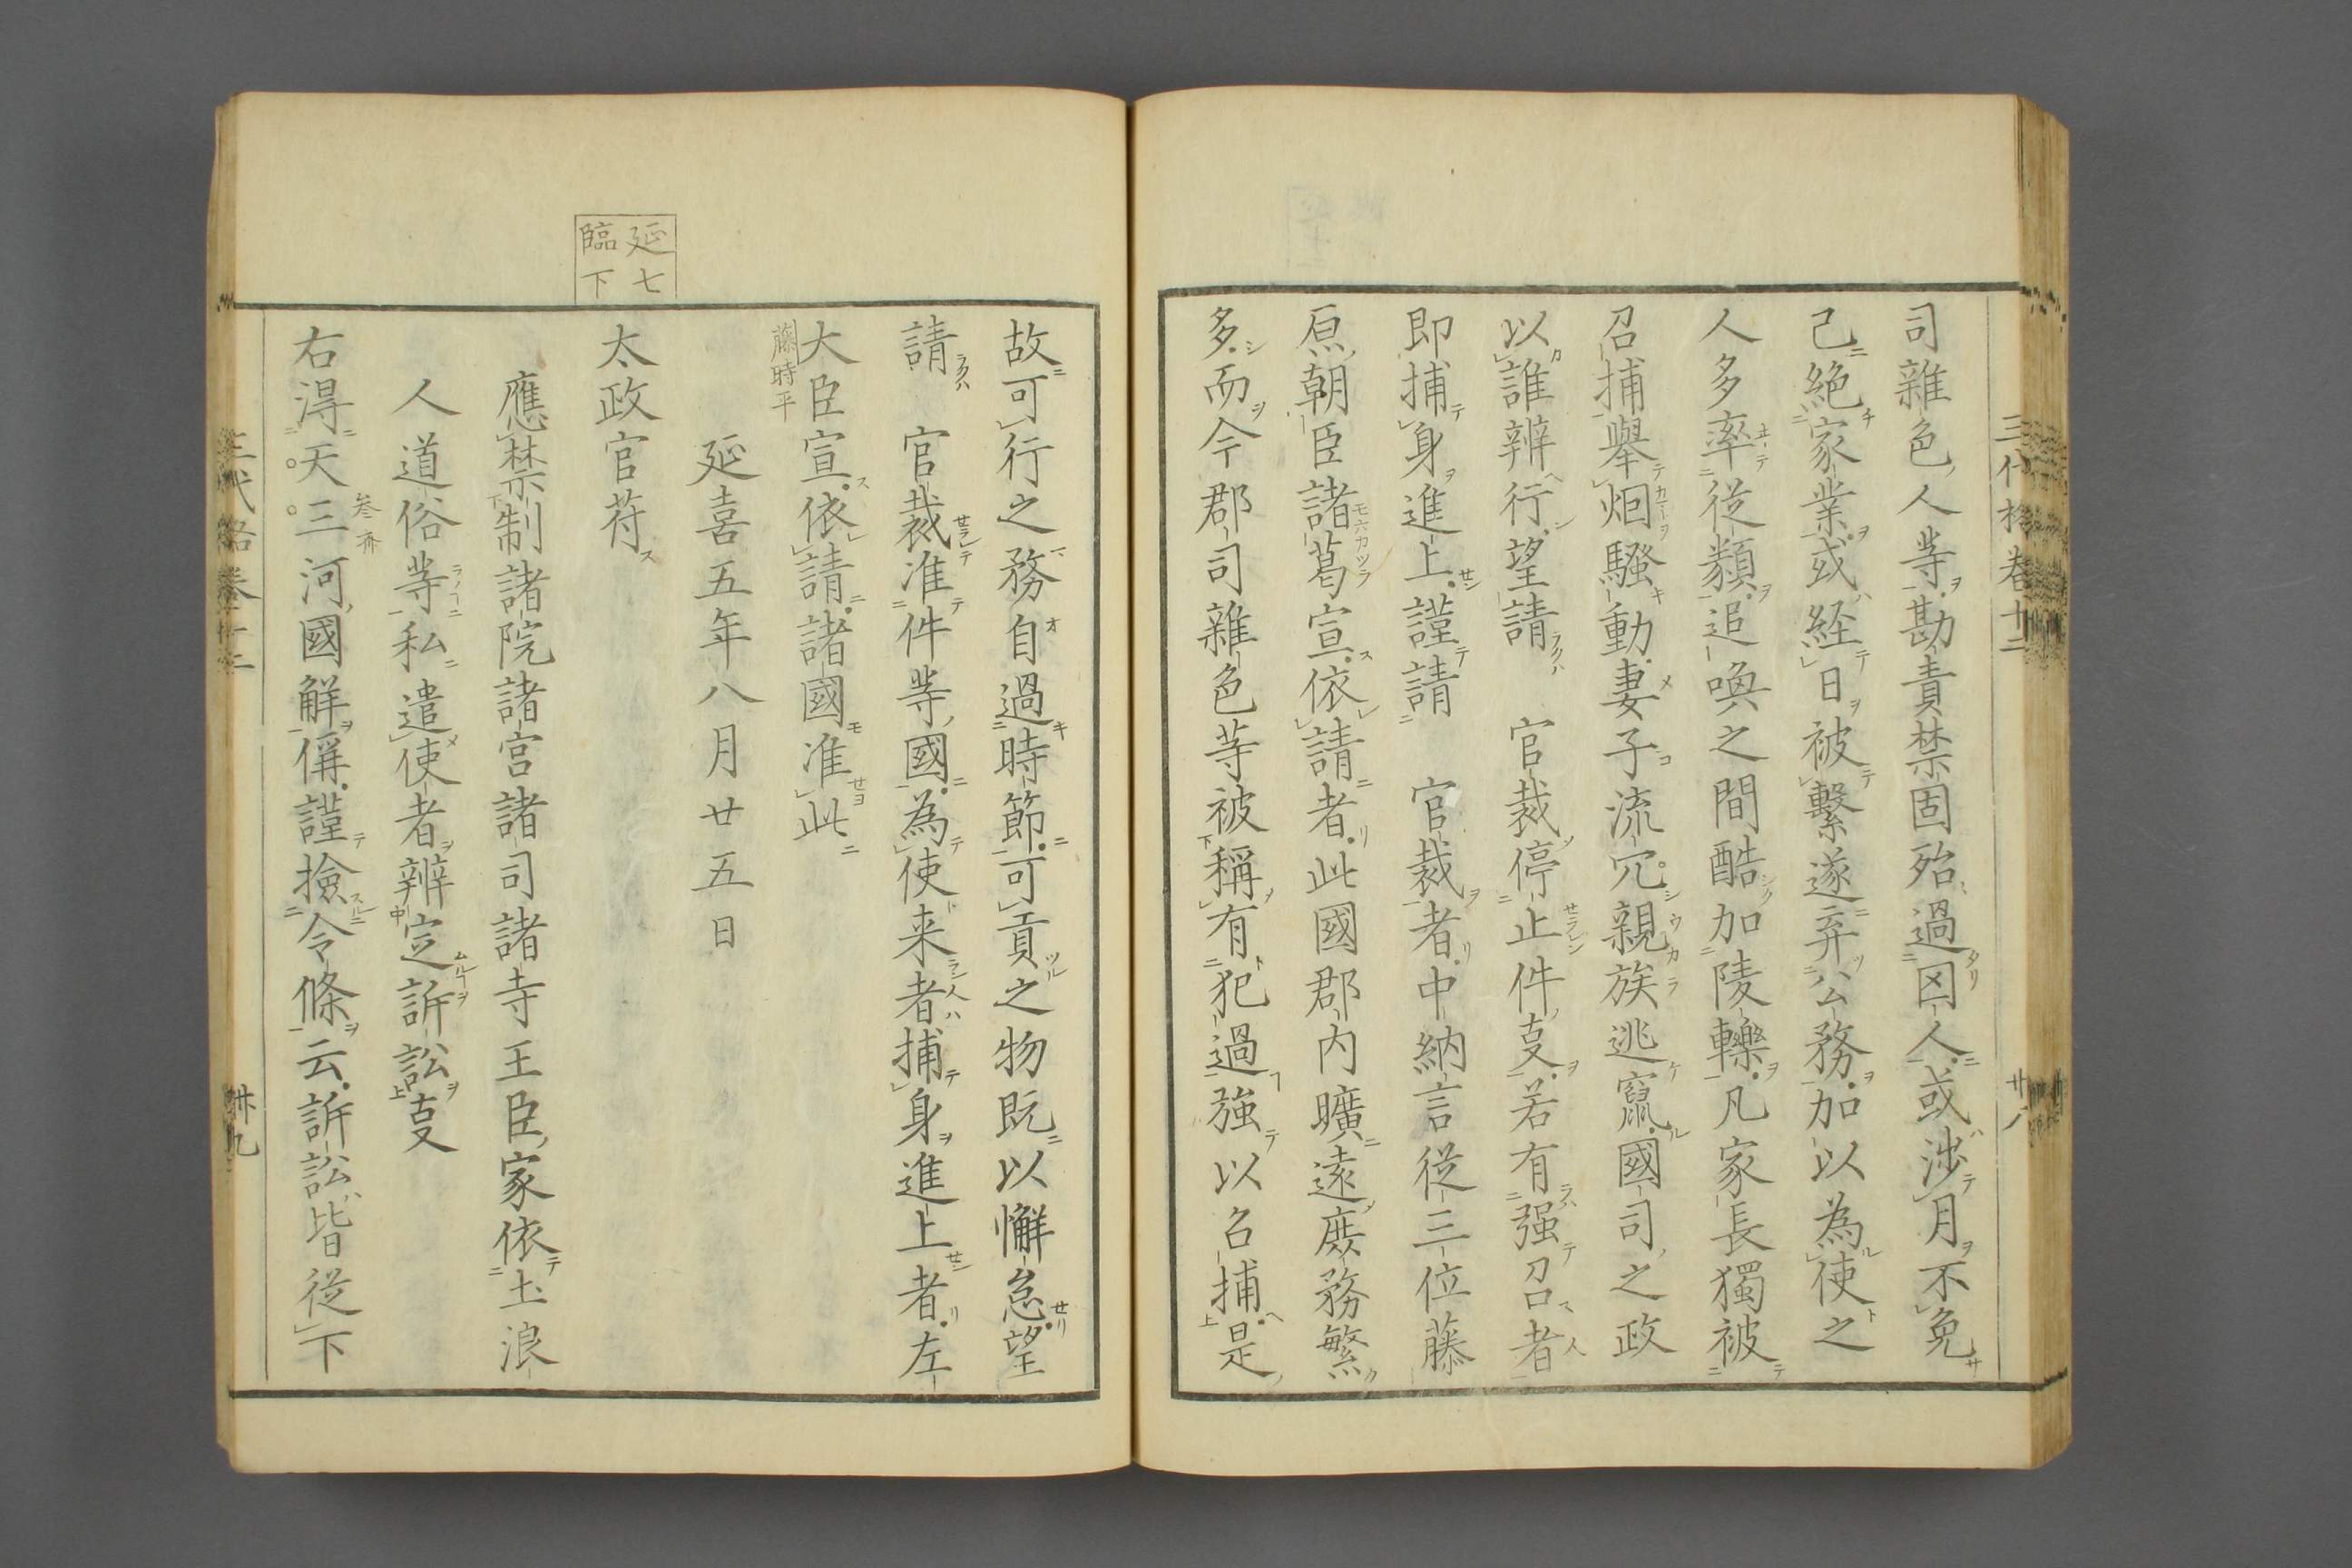 三代格卷十二　　廿八
司雜色人等勘責禁固殆過囚人或渉月不免
己絶家業或経日被繋遂弃公務加以為使之
人多率從類追喚之間酷加陵轢凡家長獨被
召捕舉烟騷動妻子流冗親族逃竄國司之政
以誰辨行望請　官裁停止件㕝若有强召者
即捕身進上謹請　官裁者中納言從三位藤
原朝臣諸葛宣依請者此國郡内曠遠庶務繁
多而今郡司雜色等被稱有犯過強以召捕是
故可行之務自過時節可貢之物既以懈怠望
請　官裁准件等國為使来者捕身進上者左
大臣宣依請諸國准此
藤時平
延喜五年八月廿五日
延七
臨下
太政官符
應禁制諸院諸宮諸司諸寺王臣家依土浪
人道俗等私遣使者辨定訴訟㕝
右得天三河國解偁謹撿令條云訴訟皆從下
参 齊
三代格卷十二　　卅九